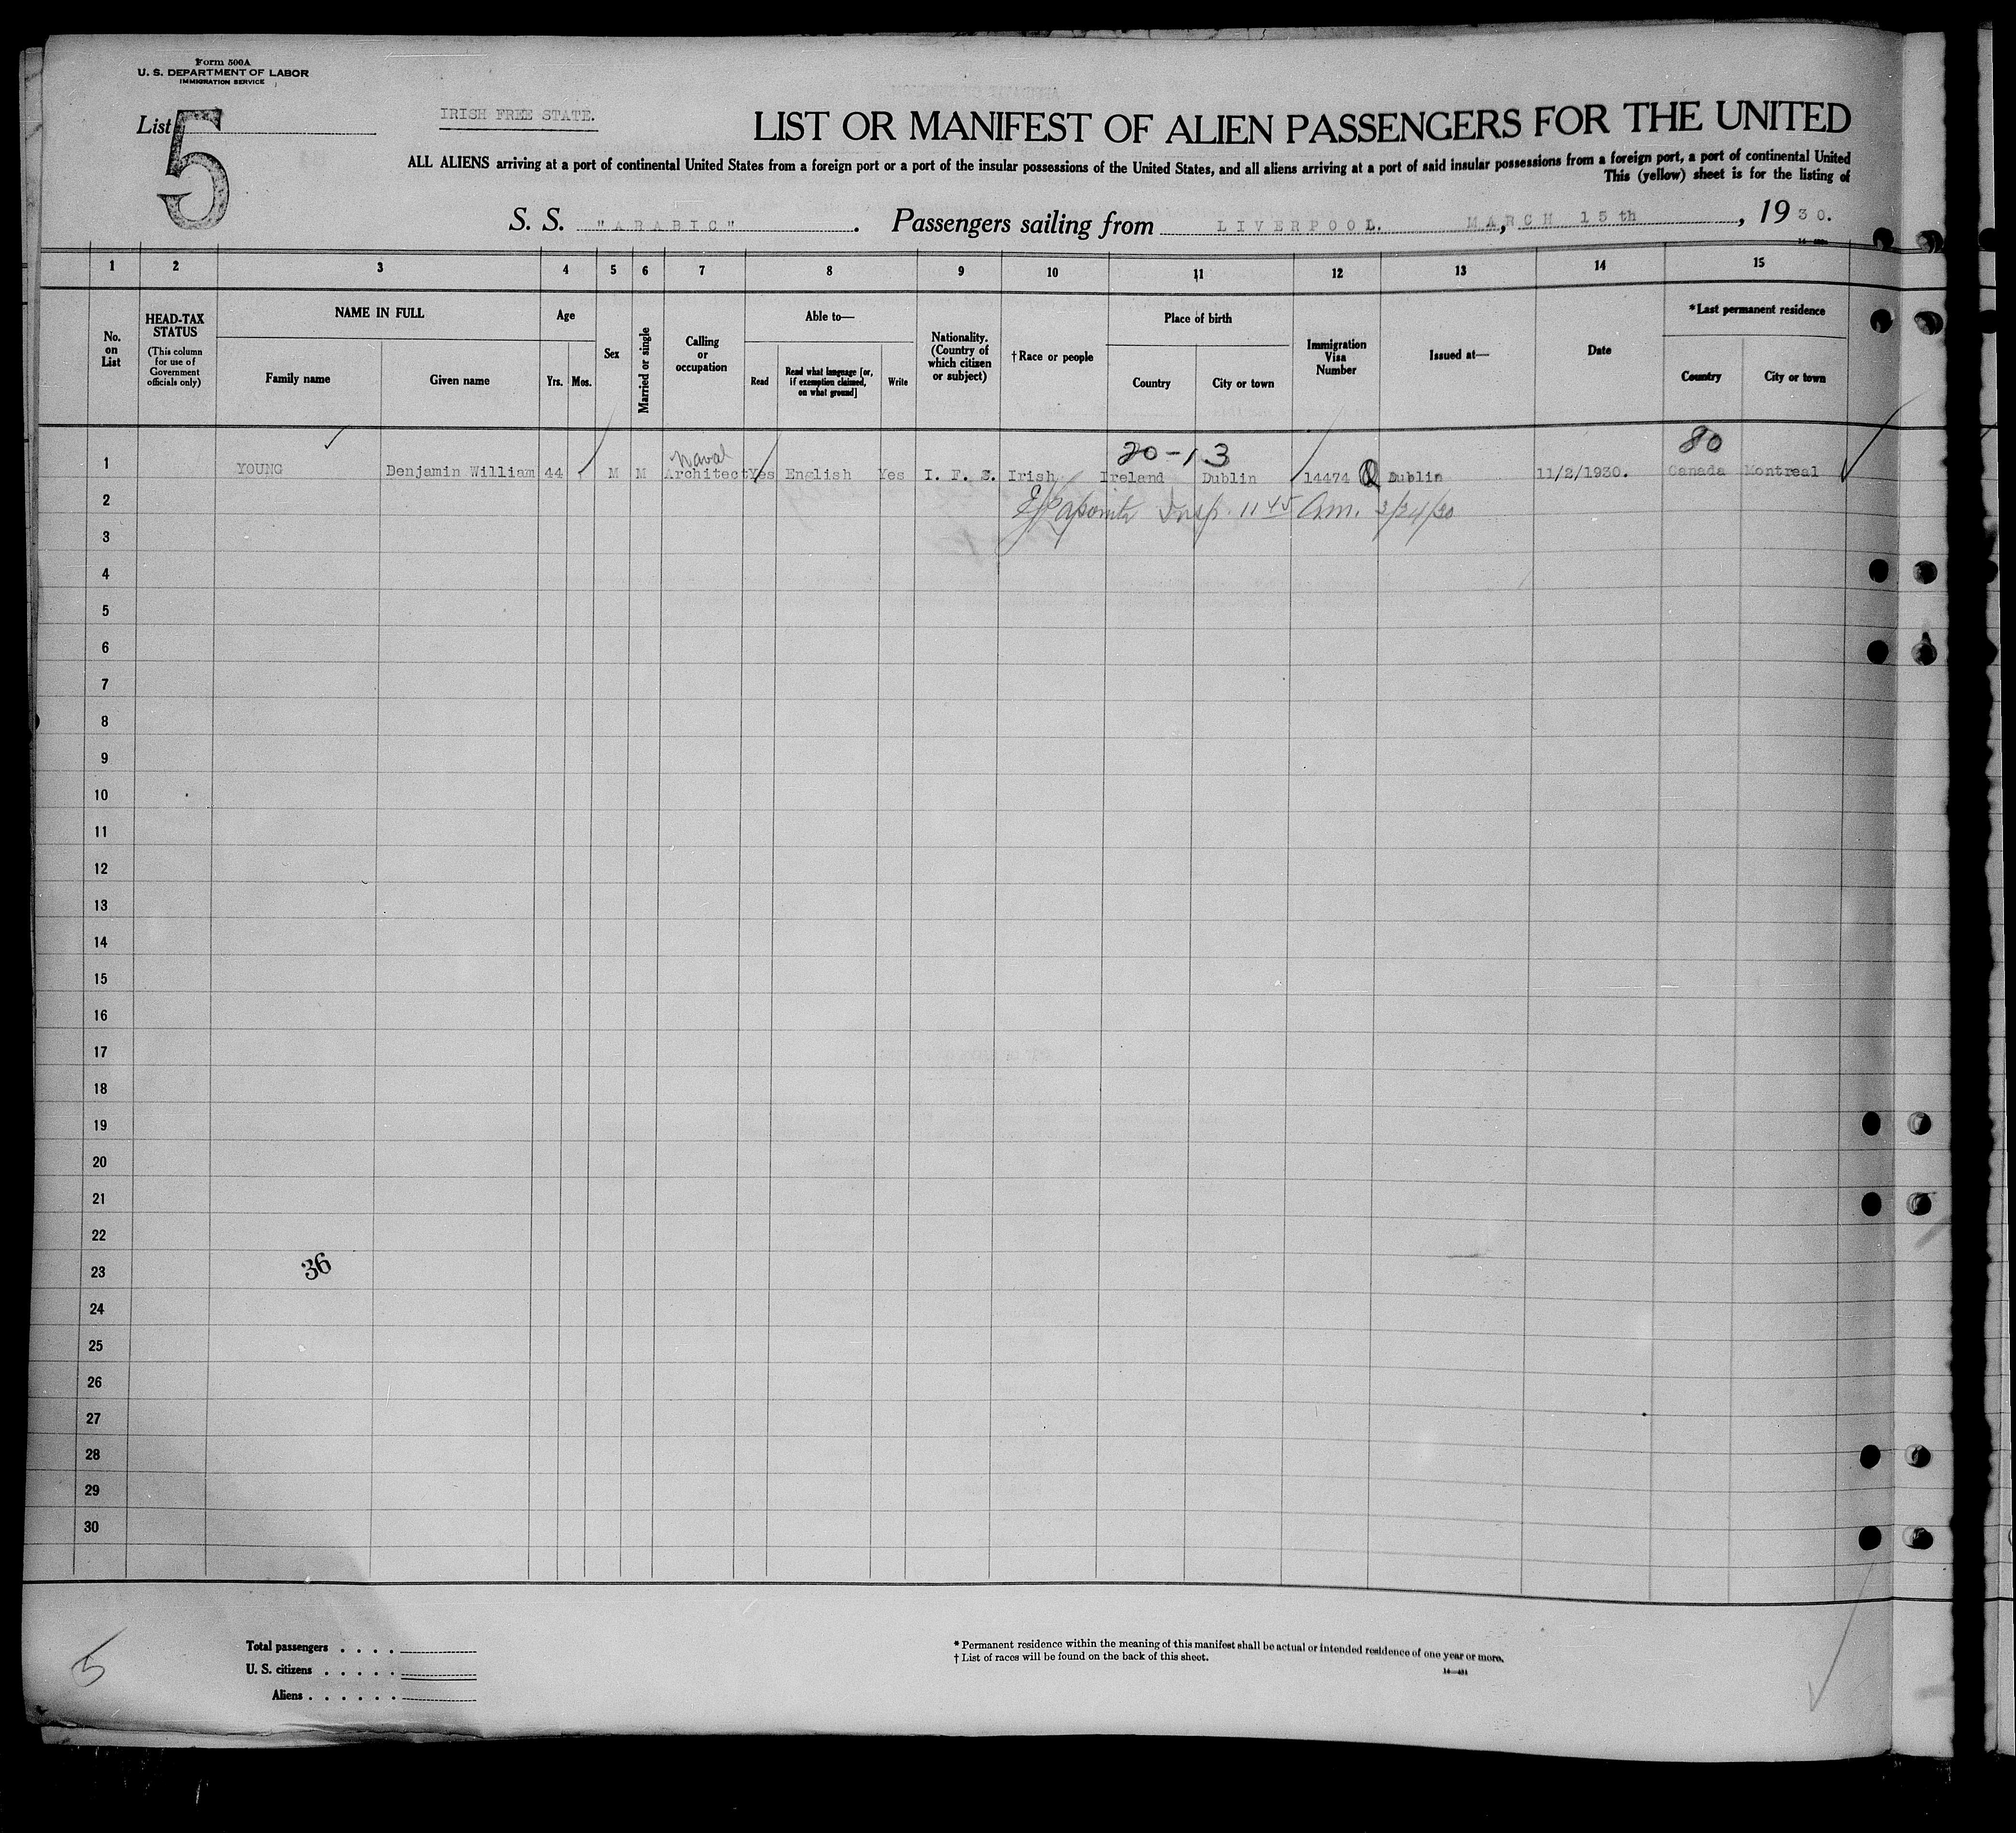 Form 500A
U. S. DEPARTMENT OF LABOR
IMMIGRATION SERVICE
List 5
IRISH FREE STATE.
LIST OR MANIFEST OF ALIEN PASSENGERS FOR THE UNITED
ALL ALIENS arriving at a port of continental United States from a foreign port or a port of the insular possessions of the United States, and all aliens arriving at a port of said insular possessions from a foreign port, a port of continental United
This (yellow) sheet is for the listing of
S. S. "ARABIC". Passengers sailing from LIVERPOOL. MARCH 15th, 1930.
1 2 3 4 5 6 7 8 9 10 11 12 13 14 15
No. on List
HEAD-TAX STATUS
(This column for use of Government officials only)
NAME IN FULL
Family name Given name
Age
Yrs. Mos.
Sex
Married or single
Calling or occupation
Able to—
Read
Read what language [or, if exemption claimed, on what ground]
Write
Nationality. (Country of which citizen or subject)
†Race or people
Place of birth
Country City or town
Immigration Visa Number
Issued at—
Date
*Last permanent residence
Country City or town
Naval 20-13 80
1 YOUNG Benjamin William 44 M M Architect Yes English Yes I. F. S. Irish Ireland Dublin 14474 Q Dublin 11/2/1930. Canada Montreal
2 Insp. 11 45 Am. 3/24/30
3
4
5
6
7
8
9
10
11
12
13
14
15
16
17
18
19
20
21
22
23 36
24
25
26
27
28
29
30
5
Total passengers . . . .
U. S. citizens . . . . .
Aliens . . . . . .
* Permanent residence within the meaning of this manifest shall be actual or intended residence of one year or more.
† List of races will be found on the back of this sheet.